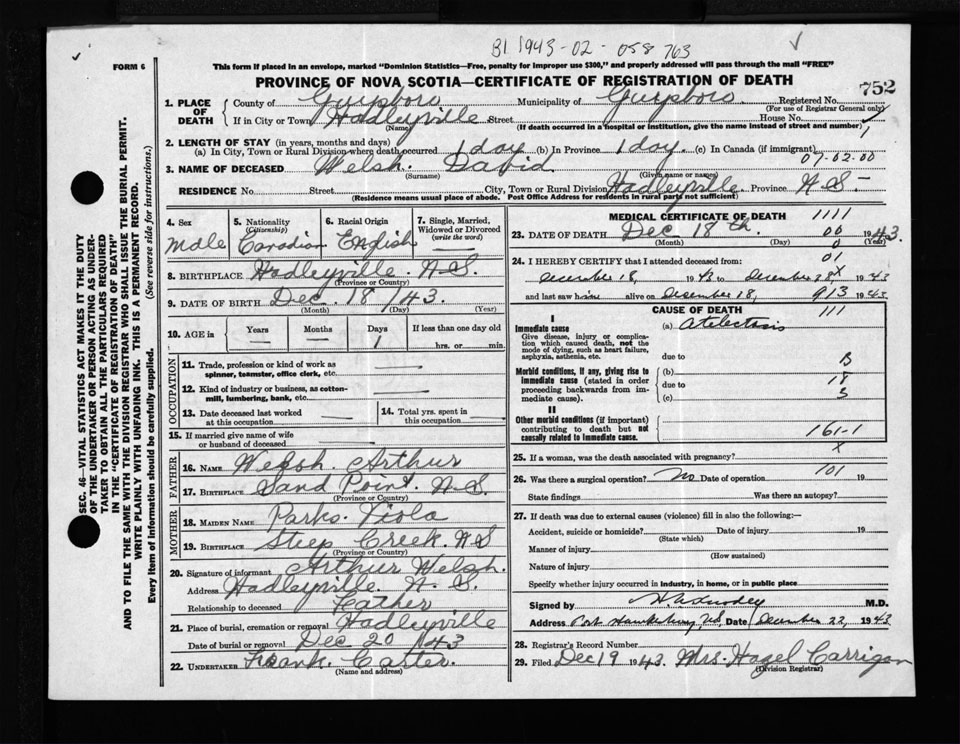 B1 1943-02-058763
FORM 6
This form if placed in an envelope, marked "Dominion Statistics—Free, penalty for improper use $300," and properly addressed will pass through the mail "FREE"
PROVINCE OF NOVA SCOTIA—CERTIFICATE OF REGISTRATION OF DEATH
752
1. PLACE OF DEATH
County of Guysboro Municipality of Guysboro Registered No.
(For use of Registrar General only)
If in City or Town Hadleyville Street House No.
(Name) (If death occurred in a hospital or institution, give the name instead of street and number)
2. LENGTH OF STAY (in years, months and days)
(a) In City, Town or Rural Division where death occurred 1 day (b) In Province 1 day. (c) In Canada (if immigrant)
07-02.00
3. NAME OF DECEASED Welsh. David
(Surname) (Given name or names)
RESIDENCE No. Street City, Town or Rural Division Hadleyville Province N.S.
(Residence means usual place of abode. Post Office Address for residents in rural parts not sufficient)
4. Sex
male
5. Nationality (Citizenship)
Canadian
6. Racial Origin
English
7. Single, Married, Widowed or Divorced (write the word)
8. BIRTHPLACE Hadleyville. N.S.
(Province or Country)
9. DATE OF BIRTH Dec. 18/43.
(Month) (Day) (Year)
10. AGE in
Years Months Days If less than one day old
1 hrs. or min.
OCCUPATION
11. Trade, profession or kind of work as spinner, teamster, office clerk, etc.
12. Kind of industry or business, as cotton-mill, lumbering, bank, etc.
13. Date deceased last worked at this occupation
14. Total yrs. spent in this occupation
15. If married give name of wife or husband of deceased
FATHER
16. NAME Welsh. Arthur
17. BIRTHPLACE Sand Point. N.S.
(Province or Country)
MOTHER
18. MAIDEN NAME Parks. Viola
19. BIRTHPLACE Steep Creek. N.S
(Province or Country)
20. Signature of informant Arthur Welsh.
Address Hadleyville. N.S.
Relationship to deceased Father
21. Place of burial, cremation or removal Hadleyville
Date of burial or removal Dec 20 1943
22. UNDERTAKER Frank. Carter.
(Name and address)
MEDICAL CERTIFICATE OF DEATH 1111
23. DATE OF DEATH Dec 18th. 00 1943.
(Month) (Day) 0 (Year)
24. I HEREBY CERTIFY that I attended deceased from: 01
December 18, 1943 to December 28 x 1943
and last saw him alive on December 18, 913 1943
CAUSE OF DEATH 111
I
Immediate cause
Give disease, injury or complication which caused death, not the mode of dying, such as heart failure, asphyxia, asthenia, etc.
(a) Atelectasis
due to
Morbid conditions, if any, giving rise to immediate cause (stated in order proceeding backwards from immediate cause).
(b)
B
due to 18
(c) 5
II
Other morbid conditions (if important) contributing to death but not causally related to immediate cause.
161-1
25. If a woman, was the death associated with pregnancy? x
26. Was there a surgical operation? No Date of operation 101 19
State findings Was there an autopsy?
27. If death was due to external causes (violence) fill in also the following:—
Accident, suicide or homicide? Date of injury 19
(State which)
Manner of injury
(How sustained)
Nature of injury
Specify whether injury occurred in industry, in home, or in public place
Signed by M.D.
Address Port Hawkesbury, N.S. Date December 22, 1943
28. Registrar's Record Number
29. Filed Dec 19 1943. Mrs. Hazel Carrigan
(Division Registrar)
SEC. 46—VITAL STATISTICS ACT MAKES IT THE DUTY
OF THE UNDERTAKER OR PERSON ACTING AS UNDER-
TAKER TO OBTAIN ALL THE PARTICULARS REQUIRED
IN THE "CERTIFICATE OF REGISTRATION OF DEATH"
AND TO FILE THE SAME WITH THE DIVISION REGISTRAR WHO SHALL ISSUE THE BURIAL PERMIT.
WRITE PLAINLY WITH UNFADING INK. THIS IS A PERMANENT RECORD.
Every item of information should be carefully supplied. (See reverse side for instructions.)